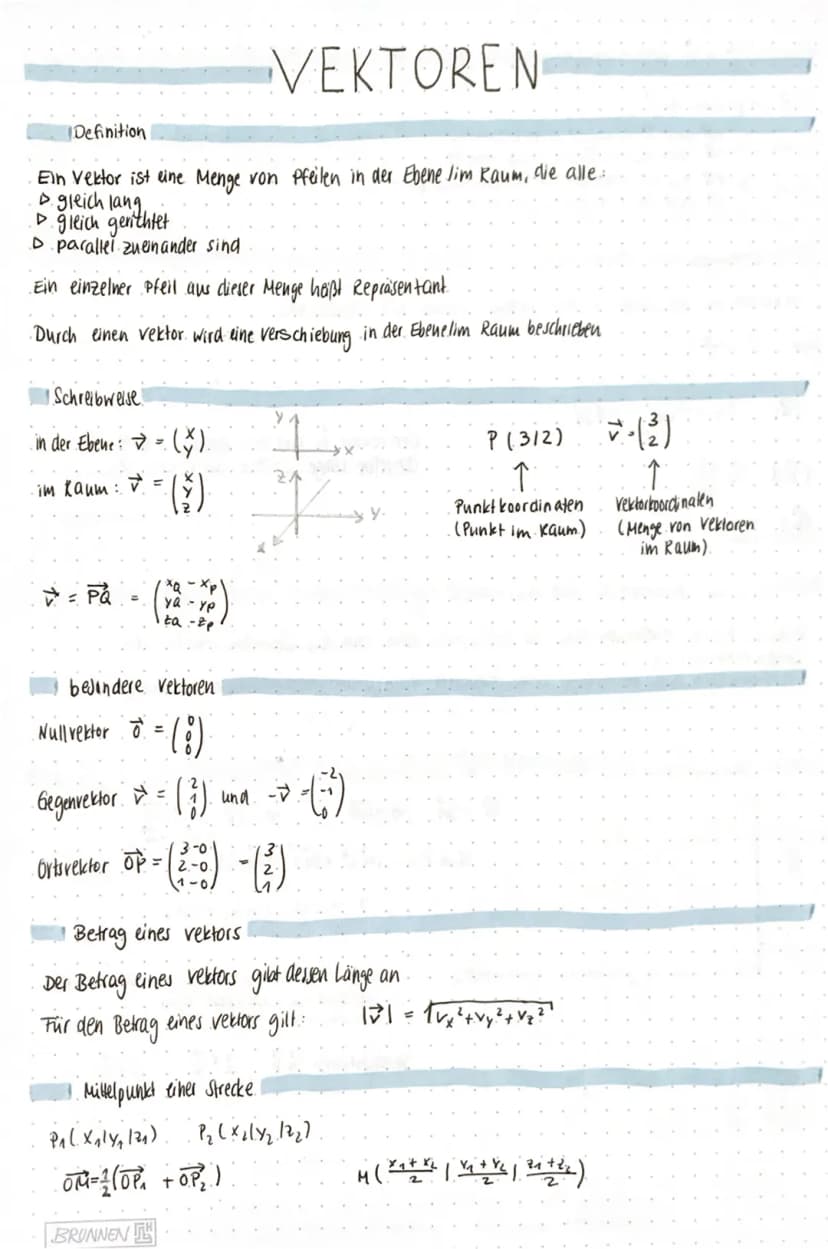 VEKTOREN
Definition
Ein Vektor ist eine Menge von Pfeilen in der Ebene /im Raum, die alle:
▷ gleich lang
▷ gleich gerichtet
▷ parallel zueinander sind
Ein einzelner Pfeil aus dieser Menge heißt Repräsentant
Durch einen Vektor wird eine Verschiebung in der Ebene/im Raum beschrieben
Schreibweise
in der Ebene: v⃗ = (x y)
y x
im Raum: v⃗ = (x y z)
z y x
P (3/2) v⃗ = (3 2)
↑ ↑
Punktkoordinaten Vektorkoordinaten
(Punkt im Raum) (Menge von Vektoren
im Raum)
v⃗ = PQ⃗ = (xQ - xP yQ - yP zQ - zP)
besondere Vektoren
Nullvektor o⃗ = (0 0 0)
Gegenvektor v⃗ = (2 1 0) und -v⃗ = (-2 -1 0)
Ortsvektor OP⃗ = (3-0 2-0 1-0) = (3 2 1)
Betrag eines Vektors
Der Betrag eines Vektors gibt dessen Länge an
Für den Betrag eines Vektors gilt: |v⃗| = √(vx² + vy² + vz²)
Mittelpunkt einer Strecke
P₁(x₁/y₁/z₁) P₂(x₂/y₂/z₂)
OM⃗ = 1/2 (OP₁⃗ + OP₂⃗) M ((x₁ + x₂)/2 | (y₁ + y₂)/2 | (z₁ + z₂)/2)
BRUNNEN